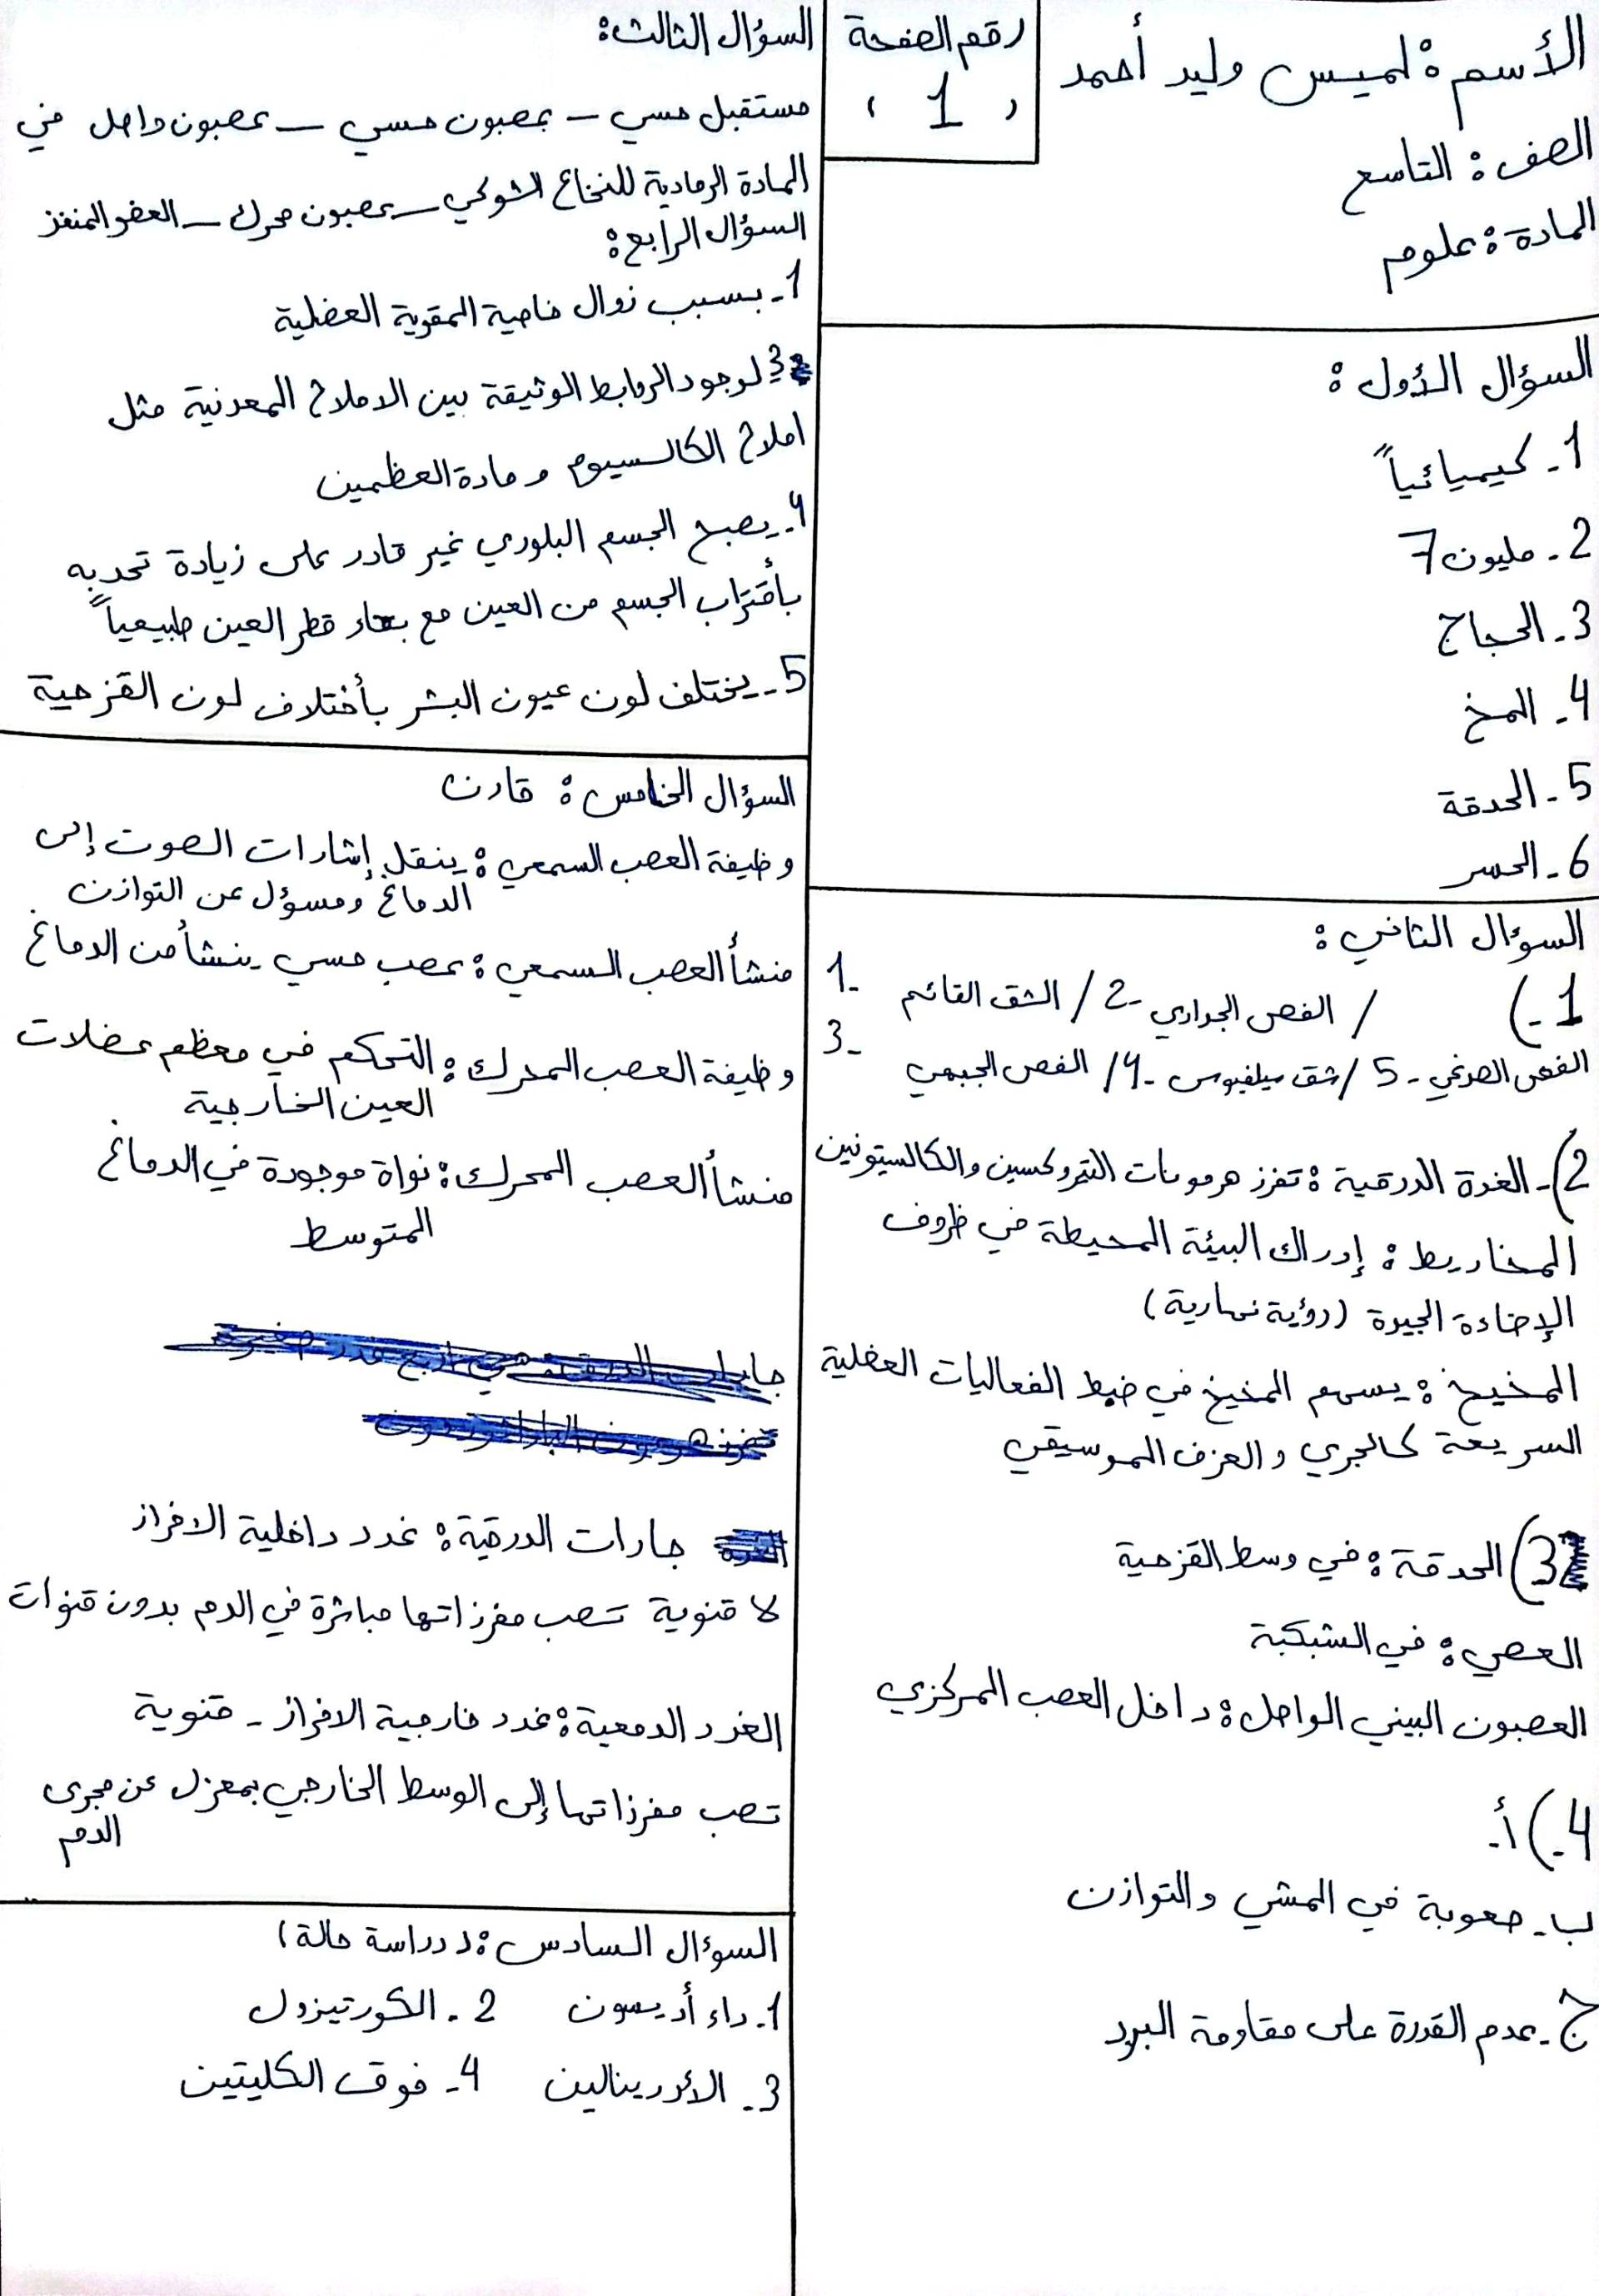 الأسم : لميس وليد أحمد
الصف : التاسع
المادة : علوم
رقم الصفحة
( 1 )
السؤال الأول :
1- كيميائياً
2- مليون 7
3- الحجاج
4- المخ
5- الحدقة
6- الحسر
السؤال الثاني :
1-) 1- الشق القائم / 2- الفص الجداري /
3- الفص الجبهي / 4- شق سيلفيوس / 5- الفص الصدغي
2)- الغدة الدرقية : تفرز هرمونات التيروكسين والكالسيتونين
المخاريط : إدراك البيئة المحيطة في ظروف
الإضاءة الجيدة (رؤية نهارية)
المخيخ : يسهم المخيخ في ضبط الفعاليات العضلية
السريعة كالجري والعزف الموسيقي
3) الحدقة : في وسط القزحية
العصي : في الشبكية
العصبون البيني الواصل : داخل العصب المركزي
4-) أ-
ب- صعوبة في المشي والتوازن
ج- عدم القدرة على مقاومة البرد
السؤال الثالث :
مستقبل حسي - عصبون حسي - عصبون واصل في
المادة الرمادية للنخاع الشوكي - عصبون محرك - العضو المنفذ
السؤال الرابع :
1- بسبب زوال خاصية المقوية العضلية
3- لوجود الروابط الوثيقة بين الاملاح المعدنية مثل
املاح الكالسيوم و مادة العظمين
4- يصبح الجسم البلوري غير قادر على زيادة تحدبه
بأقتراب الجسم من العين مع بقاء قطر العين طبيعياً
5- يختلف لون عيون البشر بأختلاف لون القزحية
السؤال الخامس : قارن
وظيفة العصب السمعي : ينقل إشارات الصوت إلى
الدماغ ومسؤل عن التوازن
منشأ العصب السمعي : عصب حسي ينشأ من الدماغ
وظيفة العصب المحرك : التحكم في معظم عضلات
العين الخارجية
منشأ العصب المحرك : نواة موجودة في الدماغ
المتوسط
جارات الدرقية : غدد داخلية الافراز
لا قنوية تصب مفرزاتها مباشرة في الدم بدون قنوات
الغدد الدمعية : غدد خارجية الافراز - قنوية
تصب مفرزاتها إلى الوسط الخارجي بمعزل عن مجرى
الدم
السؤال السادس : ( دراسة حالة )
1- داء أديسون 2- الكورتيزول
3- الأدرينالين 4- فوق الكليتين